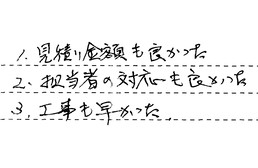 1. 見積り金額も良かった
2. 担当者の対応も良かった
3. 工事も早かった。